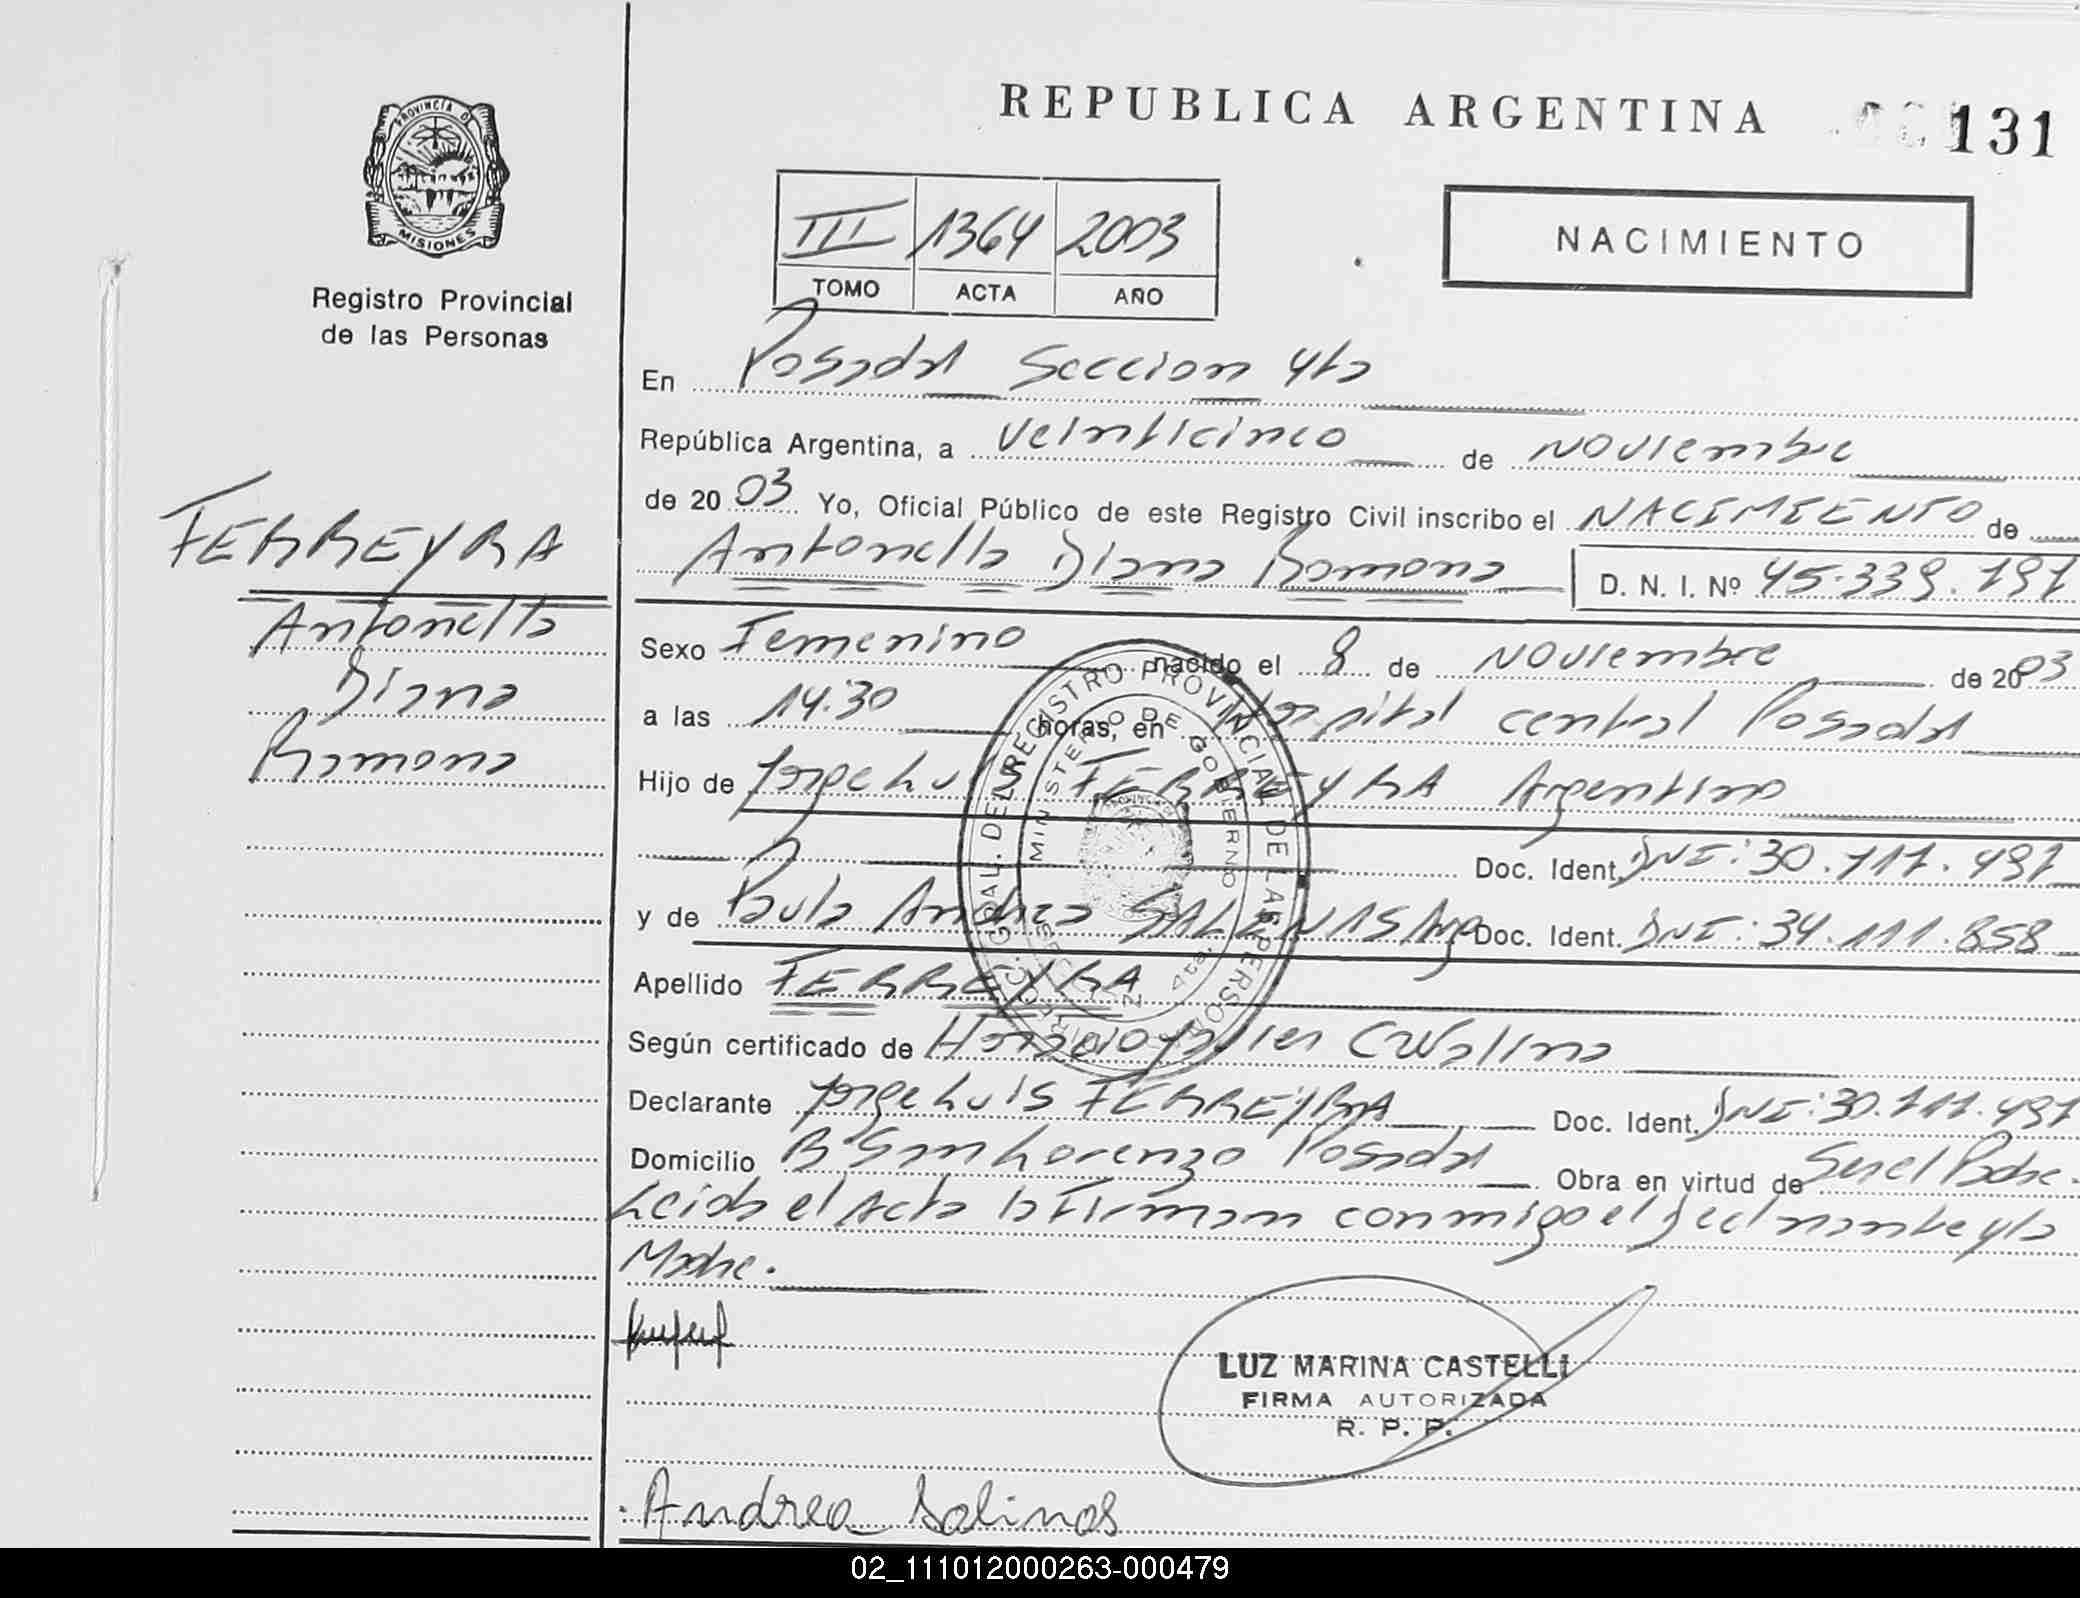 REPUBLICA ARGENTINA 131
PROVINCIA DE MISIONES
Registro Provincial
de las Personas
III 1364 2003
TOMO ACTA AÑO
NACIMIENTO
En Posadas Seccion 4ta
República Argentina, a veinticinco de noviembre
de 2003 Yo, Oficial Público de este Registro Civil inscribo el NACIMIENTO de
Antonella Diana Ramona D. N. I. Nº 45.339.797
FERREYRA
Antonella
Diana
Ramona
Sexo Femenino nacido el 8 de noviembre de 2003
a las 14:30 horas, en Hospital central Posadas
Hijo de Jorge Luis FERREYRA Argentino
Doc. Ident. DNI: 30.777.497
y de Paula Andrea SALINAS Arg Doc. Ident. DNI: 34.111.858
Apellido FERREYRA
Según certificado de Horacio Javier
Declarante Jorge Luis FERREYRA Doc. Ident. DNI: 30.777.497
Domicilio Bº San Lorenzo Posadas Obra en virtud de Ser el Padre.
Leida el Acta la Firman conmigo el declarante y la
Madre.
DIREC. GRAL. DEL REGISTRO PROVINCIAL DE LAS PERSONAS
MINISTERIO DE GOBIERNO
LUZ MARINA CASTELLI
FIRMA AUTORIZADA
R. P. P.
Andrea Salinas
02_111012000263-000479